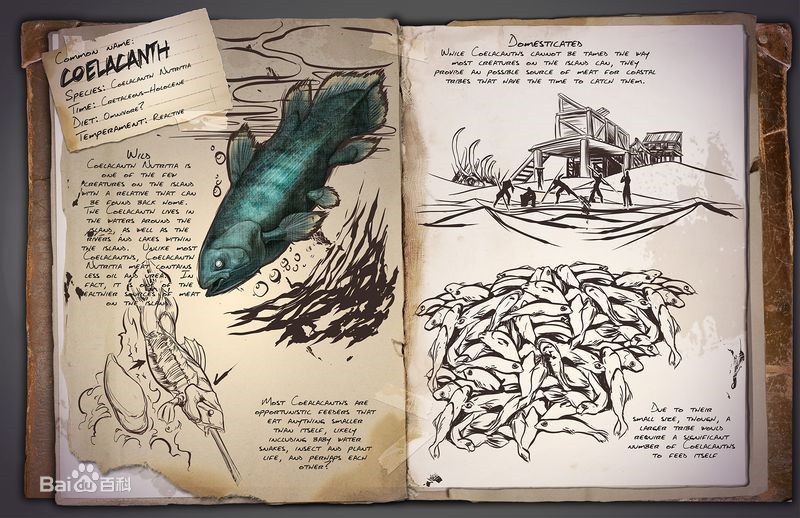 Common name:
COELACANTH
Species: Coelacanth Nutritia
Time: Cretaceous-Holocene
Diet: Omnivore?
Temperament: Reactive
Wild
Coelacanth Nutritia is
one of the few
creatures on the island
with a relative that can
be found back home.
The Coelacanth lives in
the waters around the
island, as well as the
rivers and lakes within
the island. Unlike most
Coelacanths, Coelacanth
Nutritia meat contains
less oil and urea. In
fact, it is one of the
healthier sources of meat
on the island.
Most Coealacanths are
opportunistic feeders that
eat anything smaller
than itself, likely
including baby water
snakes, insect and plant
life, and perhaps each
other?
Domesticated
While Coelacanths cannot be tamed the way
most creatures on the island can, they
provide an possible source of meat for coastal
tribes that have the time to catch them.
Due to their
small size, though, a
larger tribe would
require a significant
number of Coelacanths
to feed itself
Bai du 百科